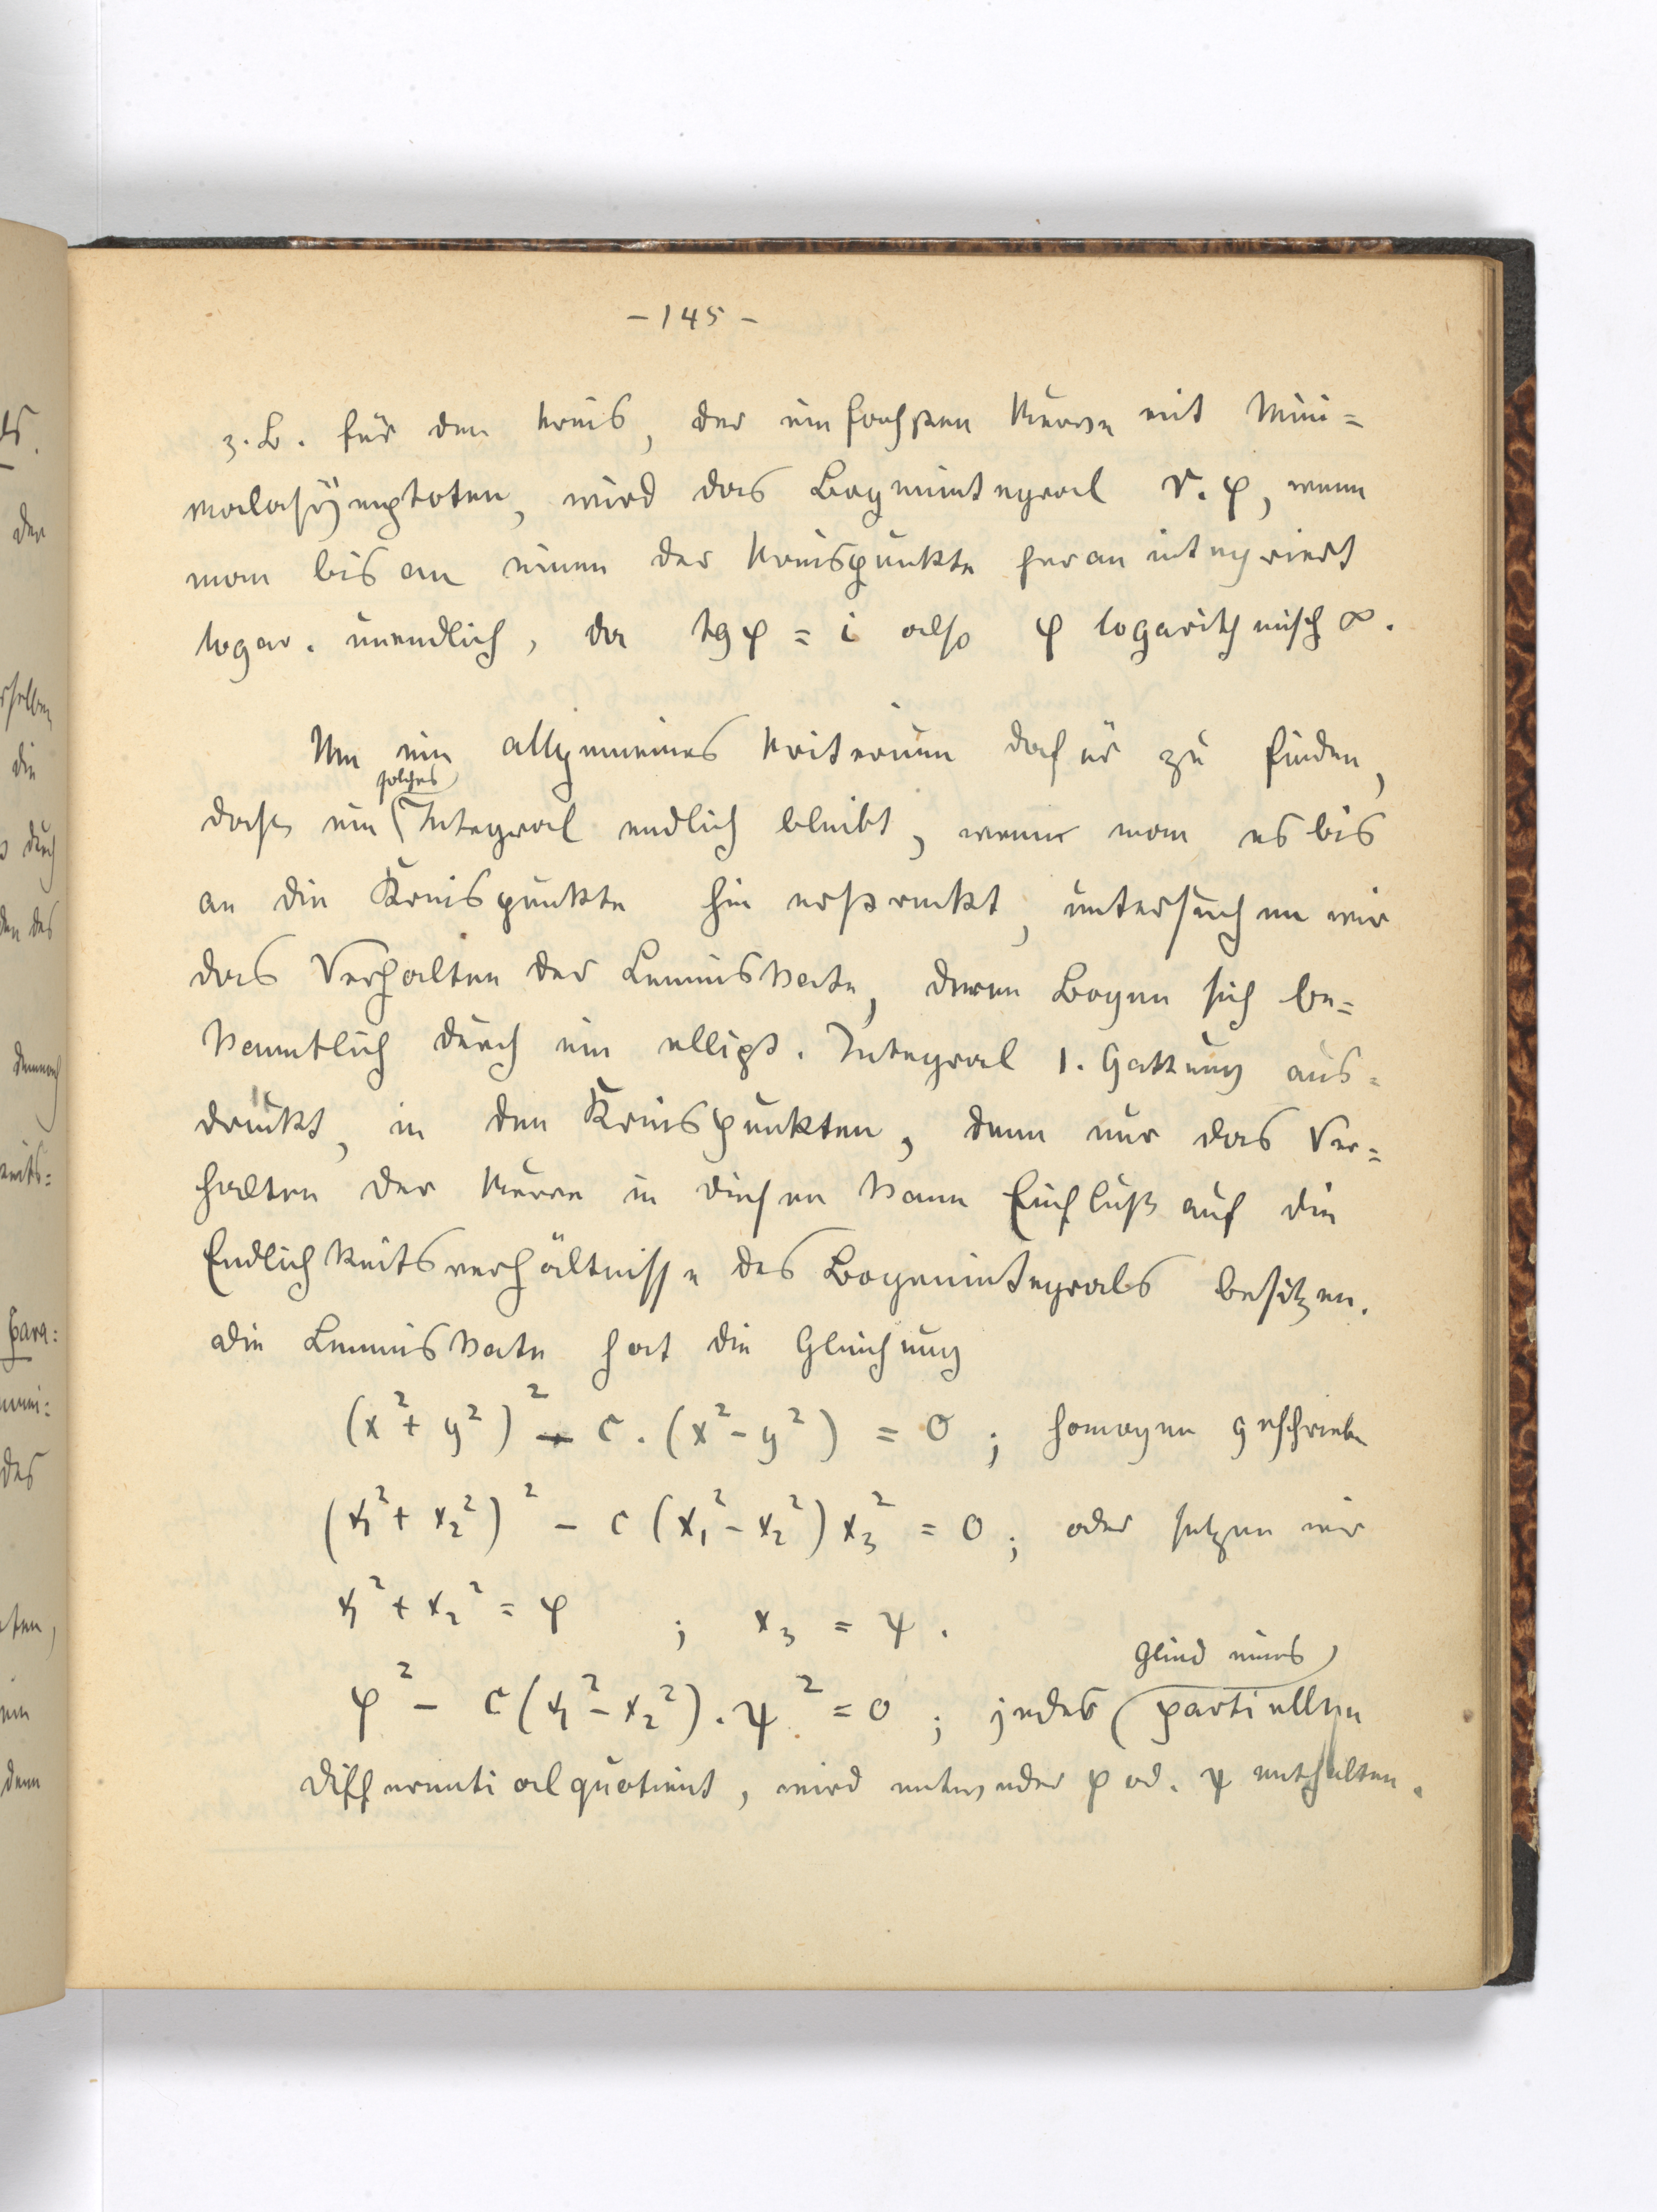 - 145 -
z. B. für den Kreis, der einfachsten Kurve mit Mini=
malasÿmptoten, wird das Bogenintegral r. φ, wenn
man bis an einen der Kreispunkte heran integriert
logar. unendlich, da tg φ = i also φ logarithmisch ∞.
Um ein allgemeines Kriterium dafür zu finden,
solches
dass ein Integral endlich bleibt, wenn man es bis
an die Kreispunkte hin erstreckt, untersuchen wir
das Verhalten der Lemniskate, deren Bogen sich be=
kanntlich durch ein ellipt. Integral 1. Gattung aus=
drückt, in den Kreispunkten, denn nur das Ver=
halten der Kurve in diesen kann Einfluß auf die
Endlichkeitsverhältnisse des Bogenintegrals besitzen.
Die Lemniskate hat die Gleichung
(x² + y²)² - c. (x² - y²) = 0 ; homogen geschrieben
(x₁² + x₂²)² - c (x₁² - x₂²) x₃² = 0 ; oder setzen wir
x₁² + x₂² = φ ; x₃ = ψ.
Glied eines
φ² - c (x₁² - x₂²) . ψ² = 0 ; jedes partiellen
Differentialquotient, wird entweder φ od. ψ enthalten.
ds.
der
die
durch
den des
demnach
Para:
des
ein
denn